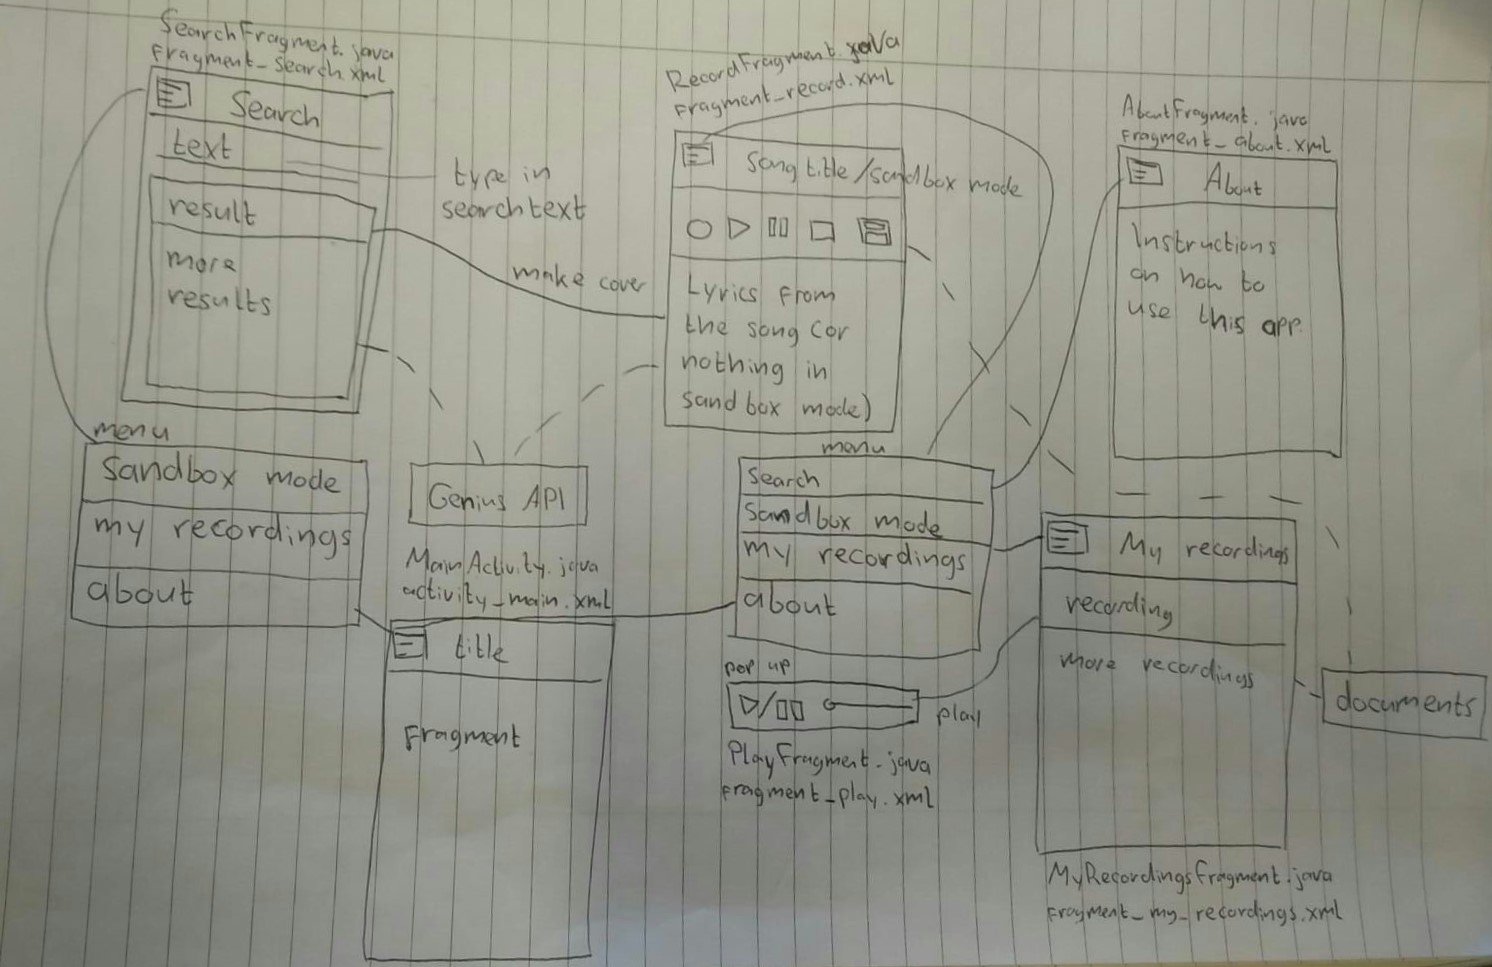 SearchFragment.java
fragment_search.xml
Search
text
result
more
results
type in
search text
make cover
RecordFragment.java
fragment_record.xml
Song title/sandbox mode
Lyrics from
the song (or
nothing in
sandbox mode)
AboutFragment.java
fragment_about.xml
About
Instructions
on how to
use this app.
menu
sandbox mode
my recordings
about
Genius API
MainActivity.java
activity_main.xml
title
Fragment
menu
search
sandbox mode
my recordings
about
pop up
play
PlayFragment.java
fragment_play.xml
My recordings
recording
more recordings
documents
MyRecordingsFragment.java
fragment_my_recordings.xml